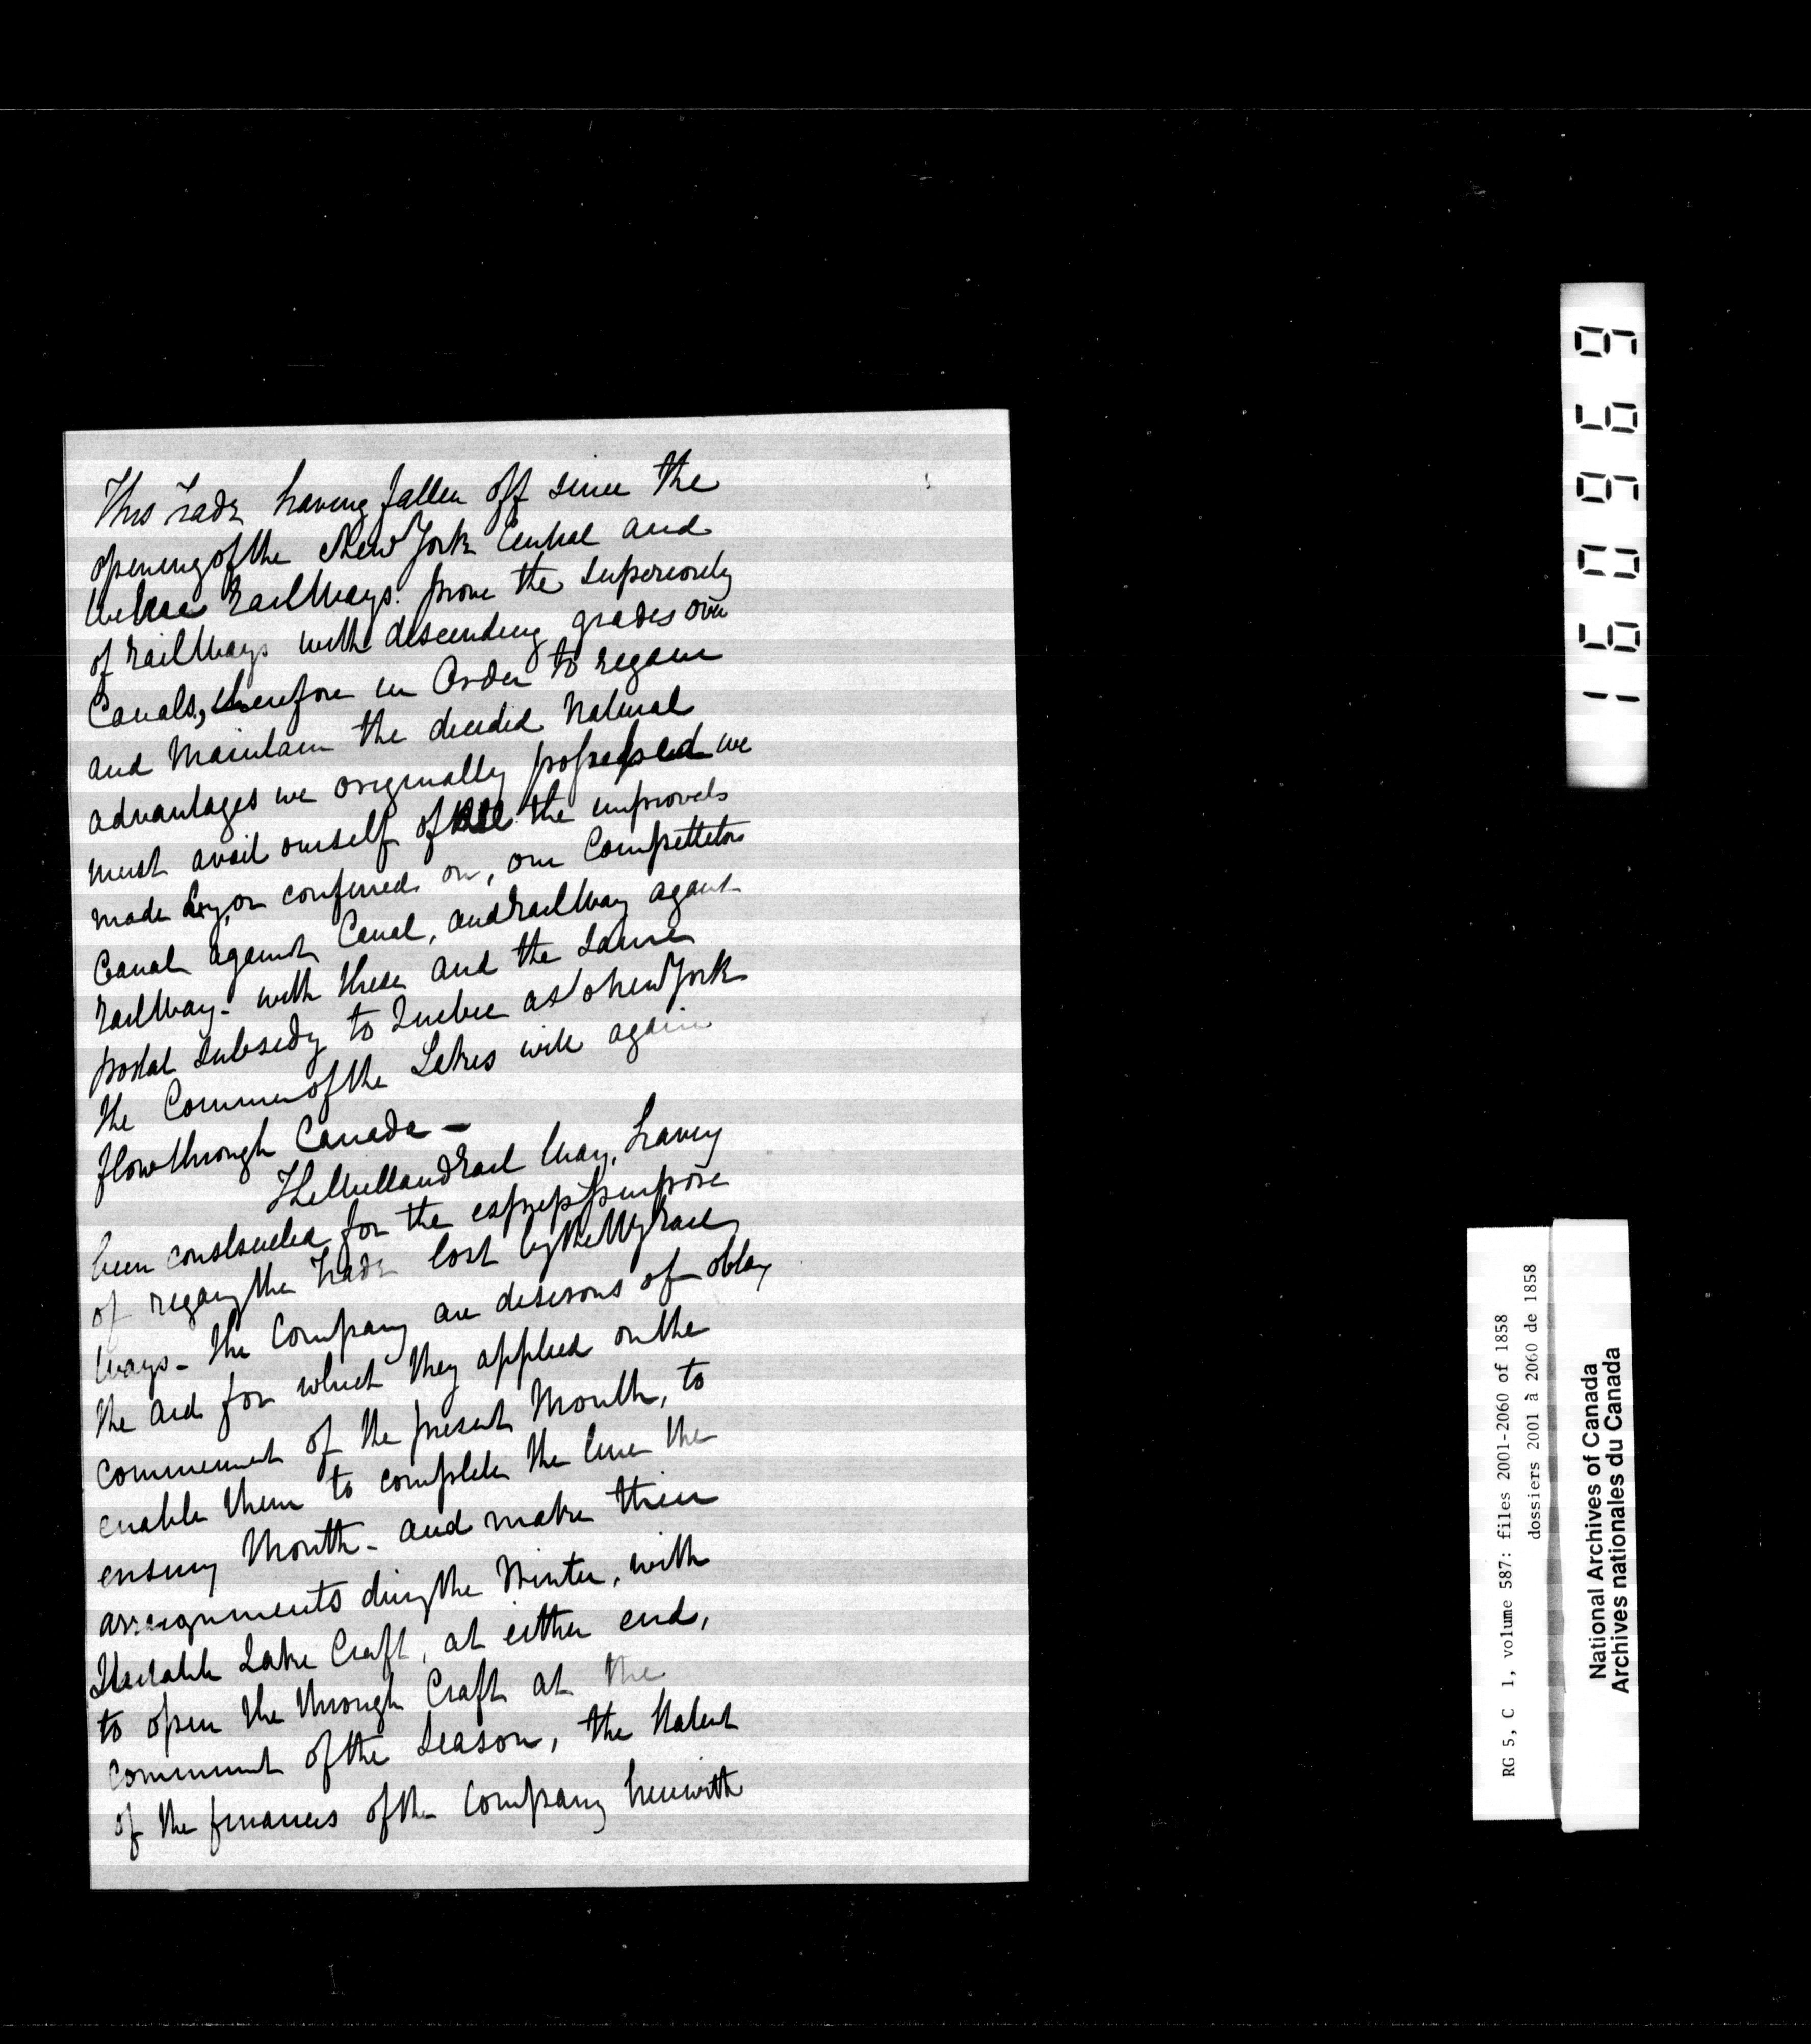 This Trade having fallen off since the
opening of the New York Central and
Railways. prove the superiority
of Railways with descending grades over
Canals, therefore in Order to regain
and Maintain the decided Natural
advantages we originally possessed we
must avail ourself of all the improvets
made by, or conferred on, our Competitors
Canal against Canal, and Railway against
Railway - with these and the same
postal subsidy to Quebec as to New York
the Commerce of the Lakes will again
flow through Canada -
The Welland Rail Way, having
been constructed for the express purpose
of regaing the Trade lost by the Rail
Ways - the Company are desirous of obtag
the aid for which they applied on the
commencement of the present Month, to
enable them to complete the line the
ensuing Month - and make their
arraignments durg the Winter, with
Suitable Lake Craft, at either end,
to open the through Craft at the
commencmt of the Season, the
of the finances of the Company herewith
160969
RG 5, C 1, volume 587: files 2001-2060 of 1858
dossiers 2001 à 2060 de 1858
National Archives of Canada
Archives nationales du Canada